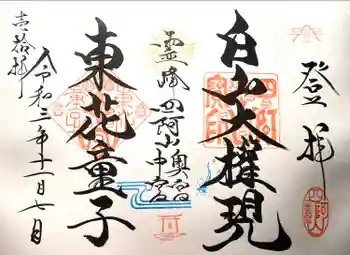 登拝
白山大権現
霊峰四阿山奥宮
中宮
東花童子
令和三年十一月七日
壱拾拝